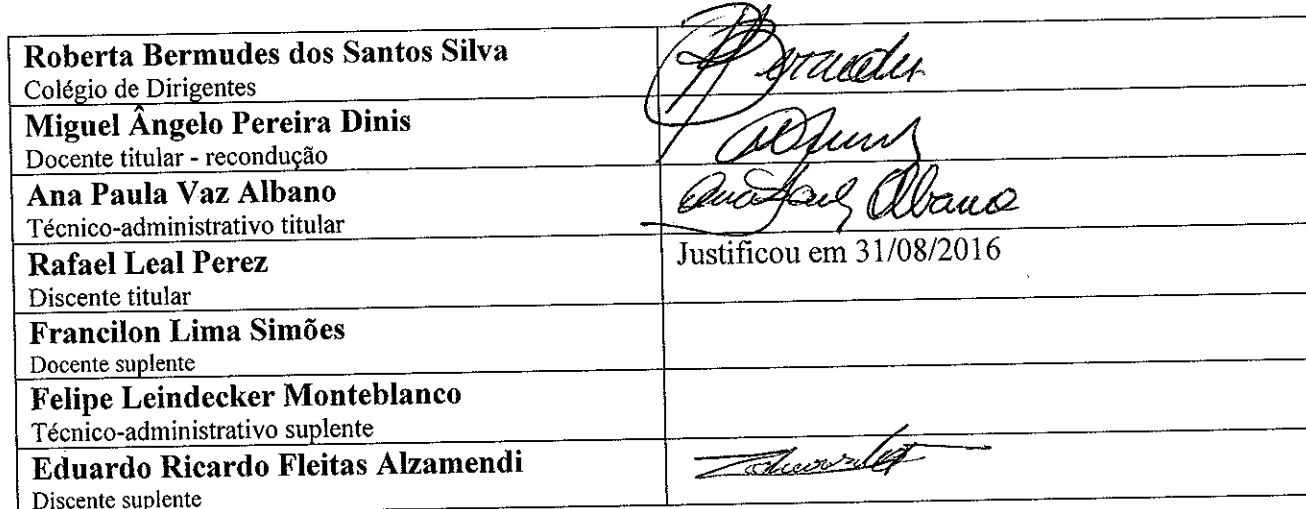 Roberta Bermudes dos Santos Silva
Colégio de Dirigentes
Bermudes
Miguel Ângelo Pereira Dinis
Docente titular - recondução
Ana Paula Vaz Albano
Técnico-administrativo titular
Ana Paula Albano
Rafael Leal Perez
Justificou em 31/08/2016
Discente titular
Francilon Lima Simões
Docente suplente
Felipe Leindecker Monteblanco
Técnico-administrativo suplente
Eduardo Ricardo Fleitas Alzamendi
Discente suplente